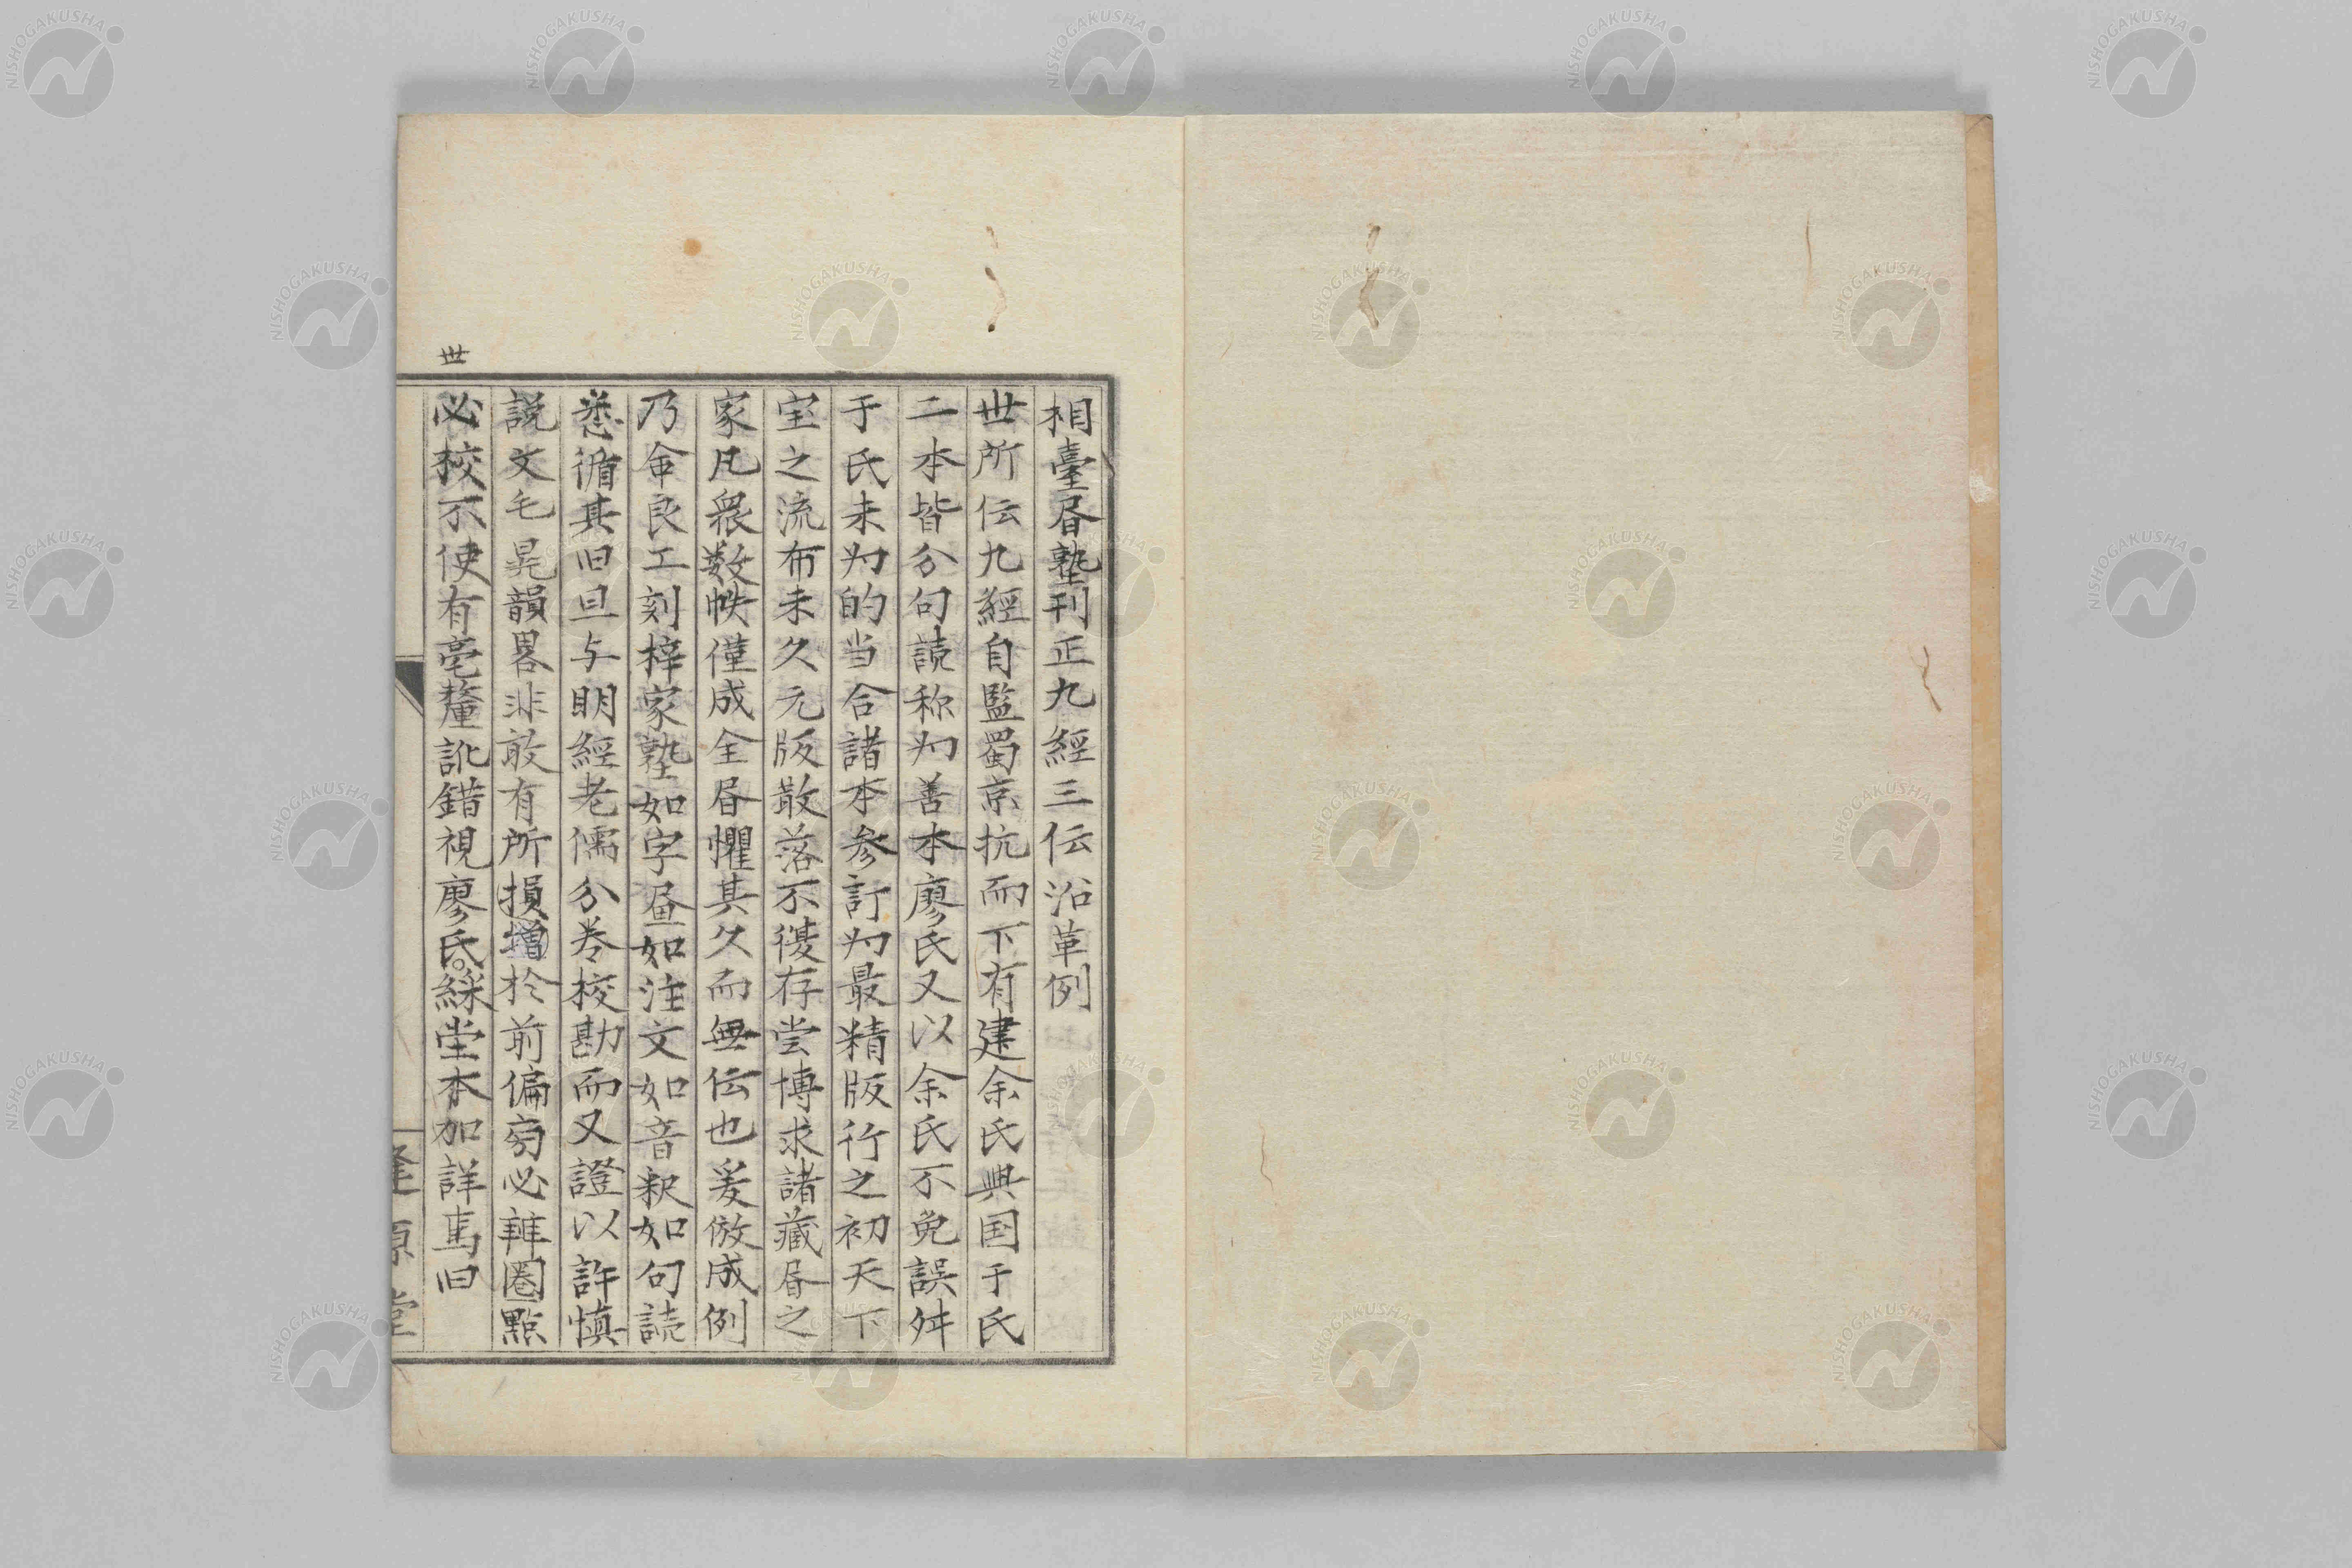 相臺昼塾刊正九經三伝沿革例
世所伝九經自監蜀京杭而下有建余氏興国于氏
二本皆分句読称为善本廖氏又以余氏不免誤舛
于氏未为的当合諸本参訂为最精版行之初天下
宝之流布未久元版散落不復存尝博求諸藏昼之
家凡衆数帙僅成全昼懼其久而無伝也爰倣成例
乃命良工刻梓家塾如字画如注文如音釈如句読
悉循其旧且与明經老儒分巻校勘而又證以許慎
説文毛晃韻畧非敢有所損増於前偏旁必辨圏點
必校不使有毫釐訛錯視廖氏。綵堂本加詳焉旧
世
逢原堂
NISHOGAKUSHA